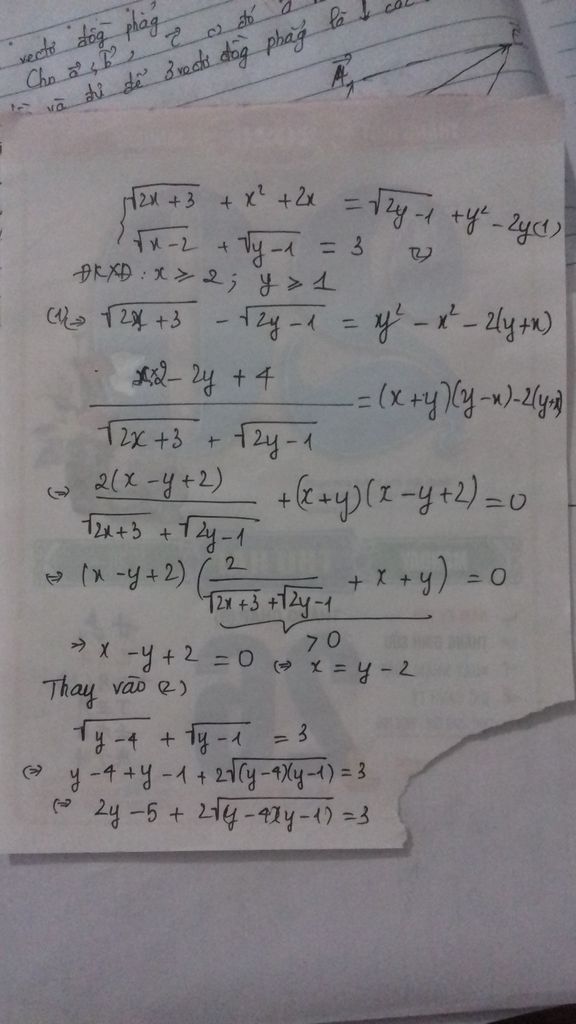 vectơ đồg phẳg
Cho a⃗, b⃗, c⃗
và đủ để 3 vectơ đồg phẳg là
A
√2x+3 + x² + 2x = √2y-1 + y² - 2y (1)
√x-2 + √y-1 = 3 (2)
ĐKXĐ: x ≥ 2; y ≥ 1
(1) ⇔ √2x+3 - √2y-1 = y² - x² - 2(y+x)
2x - 2y + 4 / √2x+3 + √2y-1 = (x+y)(y-x) - 2(y+x)
⇔ 2(x-y+2) / √2x+3 + √2y-1 + (x+y)(x-y+2) = 0
⇔ (x-y+2)(2 / √2x+3 + √2y-1 + x + y) = 0
> 0
⇒ x - y + 2 = 0 ⇔ x = y - 2
Thay vào (2)
√y-4 + √y-1 = 3
⇔ y - 4 + y - 1 + 2√(y-4)(y-1) = 3
⇔ 2y - 5 + 2√(y-4)(y-1) = 3